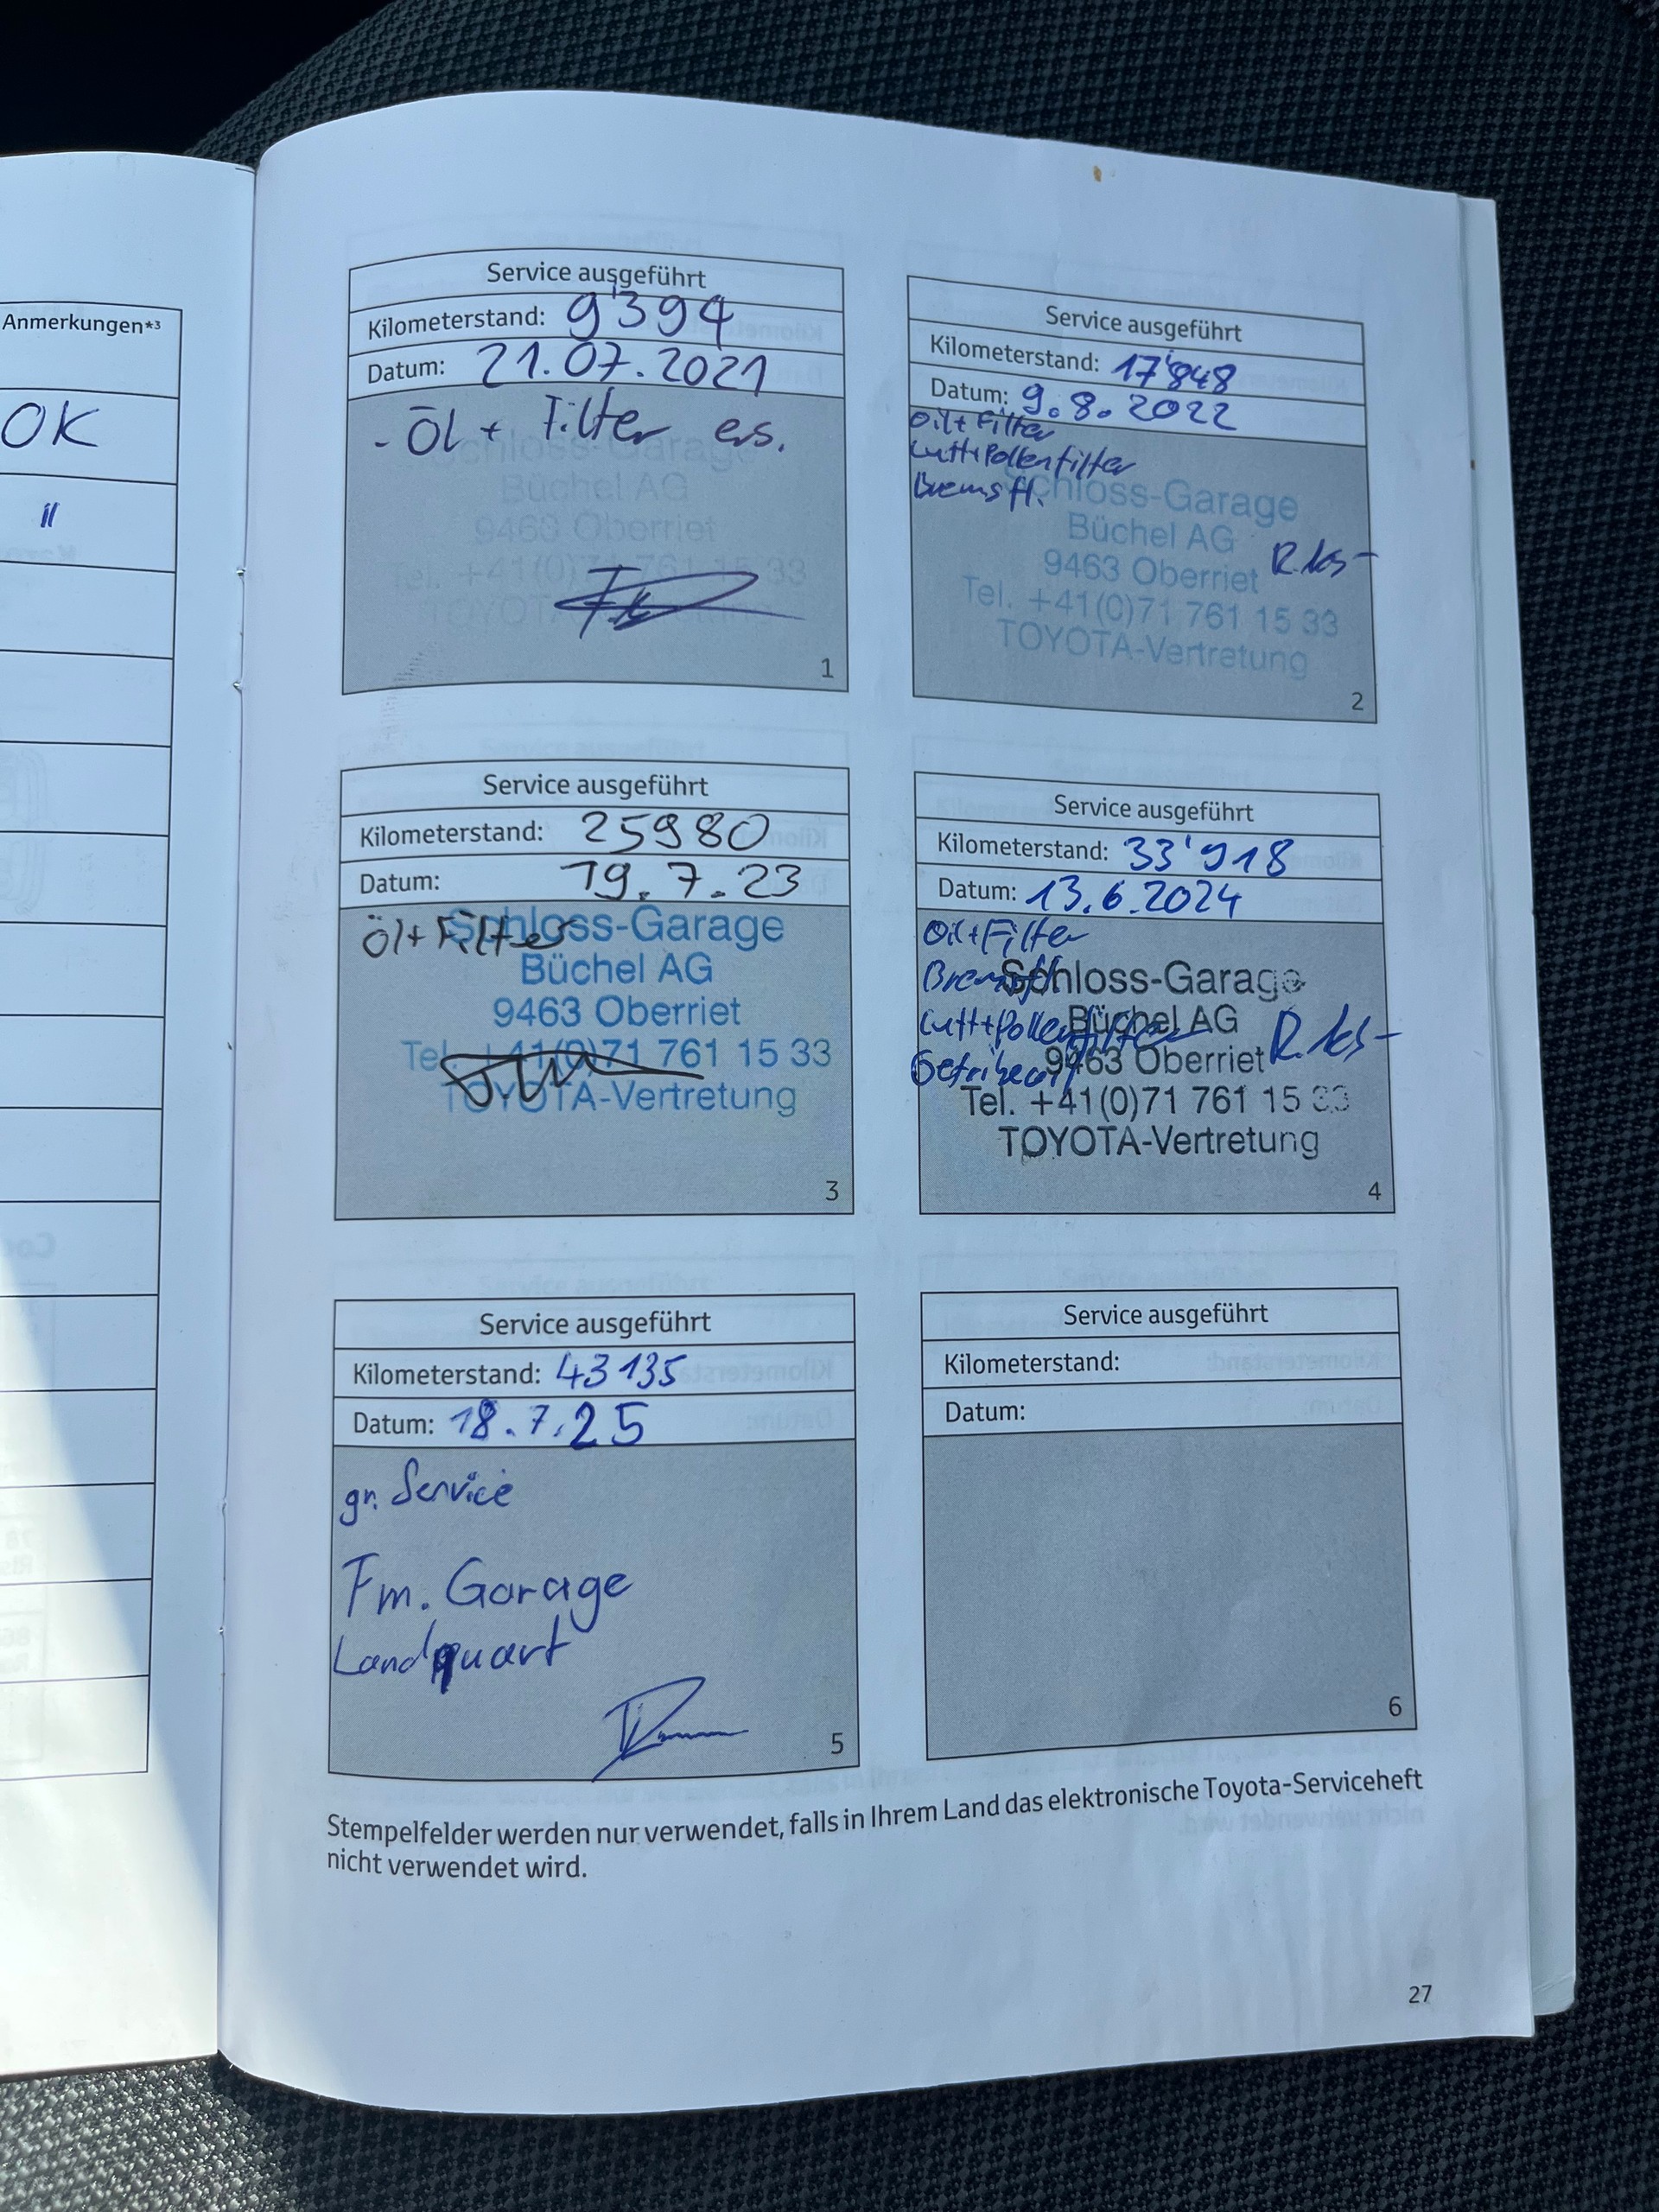 Anmerkungen*3
OK
"
Service ausgeführt
Kilometerstand: 9'394
Datum: 21.07.2021
- Öl + Filter ers.
Schloss-Garage
Büchel AG
9463 Oberriet
Tel. +41(0)71 761 15 33
TOYOTA-Vertretung
1
Service ausgeführt
Kilometerstand: 17'848
Datum: 9.8.2022
Oil+Filter
Luft+Pollenfilter
Bremsfl.
Schloss-Garage
Büchel AG
9463 Oberriet
Tel. +41(0)71 761 15 33
TOYOTA-Vertretung
2
Service ausgeführt
Kilometerstand: 25980
Datum: 19.7.23
Öl+Filter
Schloss-Garage
Büchel AG
9463 Oberriet
Tel. +41(0)71 761 15 33
TOYOTA-Vertretung
3
Service ausgeführt
Kilometerstand: 33'918
Datum: 13.6.2024
Oil+Filter
Bremsfl.
Luft+Pollenfilter
Getriebeoil
Schloss-Garage
Büchel AG
9463 Oberriet
Tel. +41(0)71 761 15 33
TOYOTA-Vertretung
4
Service ausgeführt
Kilometerstand: 43135
Datum: 18.7.25
gr. Service
Fm. Garage
Landquart
5
Service ausgeführt
Kilometerstand:
Datum:
6
Stempelfelder werden nur verwendet, falls in Ihrem Land das elektronische Toyota-Serviceheft
nicht verwendet wird.
27